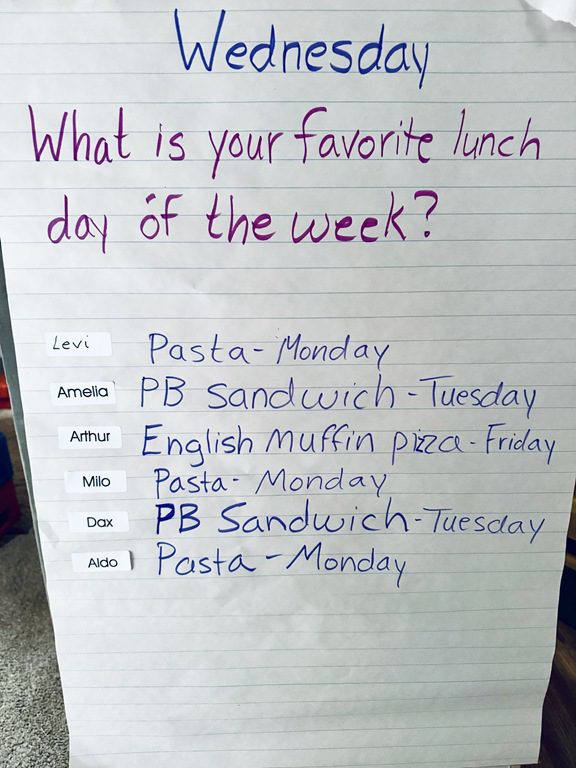 Wednesday
What is your favorite lunch
day of the week?
Levi Pasta - Monday
Amelia PB Sandwich - Tuesday
Arthur English muffin pizza - Friday
Milo Pasta - Monday
Dax PB Sandwich - Tuesday
Aldo Pasta - Monday